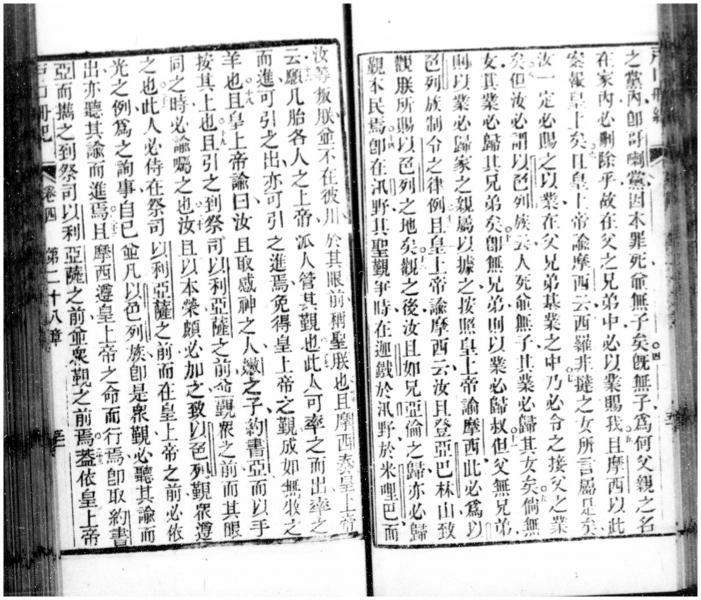 之黨內卽哥喇黨因本罪死爺無子矣旣無子爲何父親之名
在家內必刪除乎故在父之兄弟中必以業賜我且摩西以此
案報皇上矣且皇上帝諭摩西云西羅非撻之女所言屬是矣
汝一定必賜之以業在父兄弟基業之中乃必令之接父之業
矣但汝必謂以色列族云人死爺無子其業必歸其女矣倘無
女其業必歸其兄弟矣卽無兄弟則以業必歸叔但父無兄弟
則以業必歸家之親屬以據之按照皇上帝諭摩西此必爲以
色列族制令之律例且皇上帝諭摩西云汝且登亞巴林山致
觀朕所賜以色列之地矣觀之後汝且如兄亞倫之歸亦必歸
觀本民焉卽在汛野其聖觀爭時在迦鐵於汛野於米哩巴而
汝等叛朕爺不在彼川於其眼前稱聖朕也且摩西奏皇上帝
云願凡胎各人之上帝派人管其觀也此人可率之而出率之
而進可引之出亦可引之進焉免得皇上帝之觀成如無牧之
羊也且皇上帝諭曰汝且取感神之人嫩之子約書亞而以手
按其上也且引之到祭司以利亞薩之前命觀衆之前而其眼
同之時必諭囑之也汝且以本榮頗必加之致以色列觀衆遵
之也此人必侍在祭司以利亞薩之前而在皇上帝之前必依
光之例爲之詢事自己並凡以色列族卽是衆觀必聽其諭而
出亦聽其諭而進焉且摩西遵皇上帝之命而行焉卽取約書
亞而攜之到祭司以利亞薩之前爺衆觀之前焉蓋依皇上帝
戶口冊紀 卷四 第二十八章